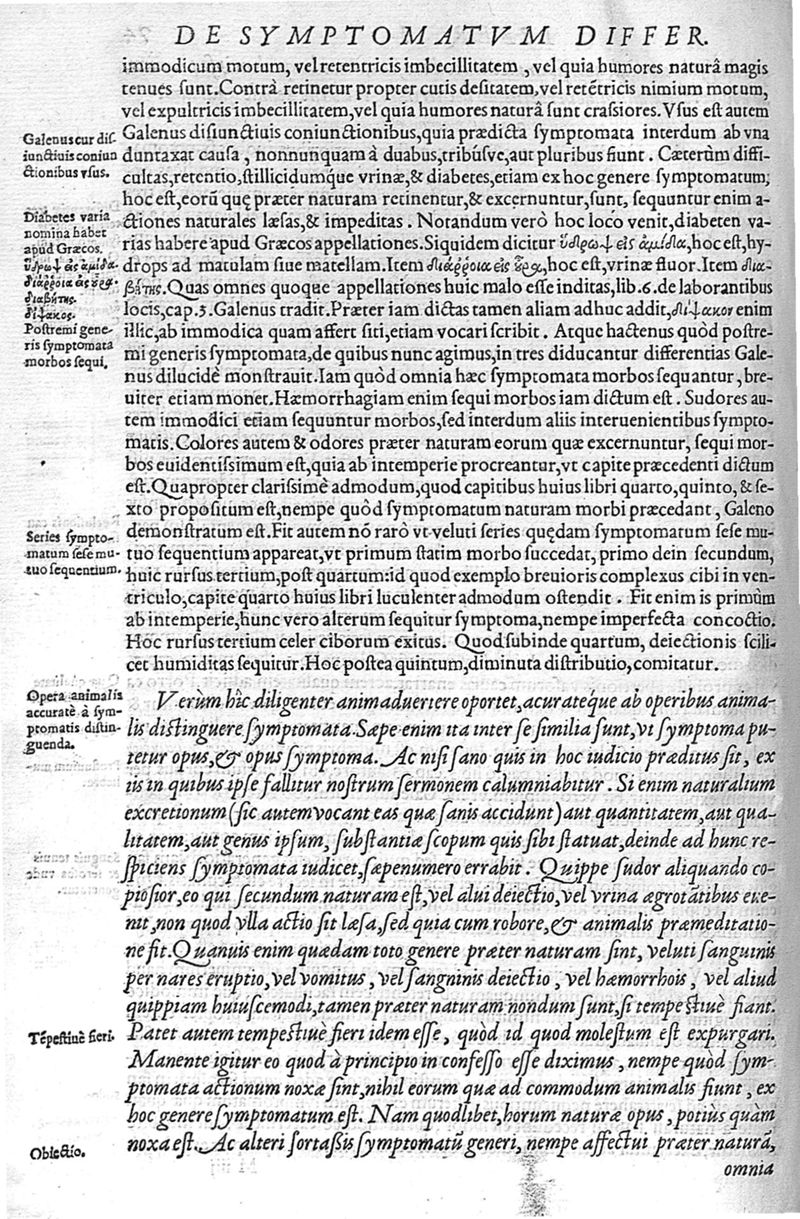 DE SYMPTOMATVM DIFFER.
immodicum motum, vel retentricis imbecillitatem, vel quia humores naturâ magis
tenues sunt. Contrà retinetur propter cutis desitatem, vel retētricis nimium motum,
vel expultricis imbecillitatem, vel quia humores naturâ sunt crassiores. Vsus est autem
Galenus disiunctiuis coniunctionibus, quia prædicta symptomata interdum ab vna
duntaxat causa, nonnunquam à duabus, tribúsve, aut pluribus fiunt. Cæterùm diffi-
cultas, retentio, stillicidiumque vrinæ, & diabetes, etiam ex hoc genere symptomatum,
hoc est, eorū quę præter naturam retinentur, & excernuntur, sunt, sequuntur enim a-
ctiones naturales læsas, & impeditas. Notandum verò hoc loco venit, diabeten va-
rias habere apud Græcos appellationes. Siquidem dicitur ὕδρωψ εἰς ἀμίδα, hoc est, hy-
drops ad matulam siue matellam. Item διάῤῥοια εἰς οὖρα, hoc est, vrinæ fluor. Item δια-
βήτης. Quas omnes quoque appellationes huic malo esse inditas, lib. 6. de laborantibus
locis, cap. 3. Galenus tradit. Præter iam dictas tamen aliam adhuc addit, δίψακον enim
illîc, ab immodica quam affert siti, etiam vocari scribit. Atque hactenus quòd postre-
mi generis symptomata, de quibus nunc agimus, in tres diducantur differentias Gale-
nus dilucidè monstrauit. Iam quòd omnia hæc symptomata morbos sequantur, bre-
uiter etiam monet. Hæmorrhagiam enim sequi morbos iam dictum est. Sudores au-
tem immodici etiam sequuntur morbos, sed interdum aliis interuenientibus sympto-
matis. Colores autem & odores præter naturam eorum quæ excernuntur, sequi mor-
bos euidentissimum est, quia ab intemperie procreantur, vt capite præcedenti dictum
est. Quapropter clarissimè admodum, quod capitibus huius libri quarto, quinto, & se-
xto propositum est, nempe quòd symptomatum naturam morbi præcedant, Galeno
demonstratum est. Fit autem nō rarò vt veluti series quędam symptomatum sese mu-
tuo sequentium appareat, vt primum statim morbo succedat, primo dein secundum,
huic rursus tertium, post quartum: id quod exemplo breuioris complexus cibi in ven-
triculo, capite quarto huius libri luculenter admodum ostendit. Fit enim is primùm
ab intemperie, hunc vero alterum sequitur symptoma, nempe imperfecta concoctio.
Hoc rursus tertium celer ciborum exitus. Quod subinde quartum, deiectionis scili-
cet humiditas sequitur. Hoc postea quintum, diminuta distributio, comitatur.
Verùm hîc diligenter animaduertere oportet, acuratéque ab operibus anima-
lis distinguere symptomata. Sæpe enim ita inter se similia sunt, vt symptoma pu-
tetur opus, & opus symptoma. Ac nisi sano quis in hoc iudicio præditus sit, ex
iis in quibus ipse fallitur nostrum sermonem calumniabitur. Si enim naturalium
excretionum (sic autem vocant eas quæ sanis accidunt) aut quantitatem, aut qua-
litatem, aut genus ipsum, substantiæ scopum quis sibi statuat, deinde ad hunc re-
spiciens symptomata iudicet, sæpenumero errabit. Quippe sudor aliquando co-
piosior, eo qui secundum naturam est, vel alui deiectio, vel vrina ægrotātibus eue-
nit, non quod vlla actio sit læsa, sed quia cum robore, & animalis præmeditatio-
ne fit. Quanuis enim quædam toto genere præter naturam sint, veluti sanguinis
per nares eruptio, vel vomitus, vel sangninis deiectio, vel hæmorrhois, vel aliud
quippiam huiuscemodi, tamen præter naturam nondum sunt, si tempestiuè fiant.
Patet autem tempestiuè fieri idem esse, quòd id quod molestum est expurgari.
Manente igitur eo quod à principio in confesso esse diximus, nempe quòd sym-
ptomata actionum noxæ sint, nihil eorum quæ ad commodum animalis fiunt, ex
hoc genere symptomatum est. Nam quodlibet, horum naturæ opus, potiùs quàm
noxa est. Ac alteri fortaßis symptomatū generi, nempe affectui præter naturā,
omnia
Galenus cur dis-
iunctiuis coniun
ctionibus vsus.
Diabetes varia
nomina habet
apud Græcos.
ὕδρωψ εἰς ἀμίδα.
διάῤῥοια εἰς οὖρα.
διαβήτης.
δίψακος.
Postremi gene-
ris symptomata
morbos sequi.
Series sympto-
matum sese mu-
tuo sequentium.
Opera animalis
accuratè à sym-
ptomatis distin-
guenda.
Tēpestiuè fieri.
Obiectio.